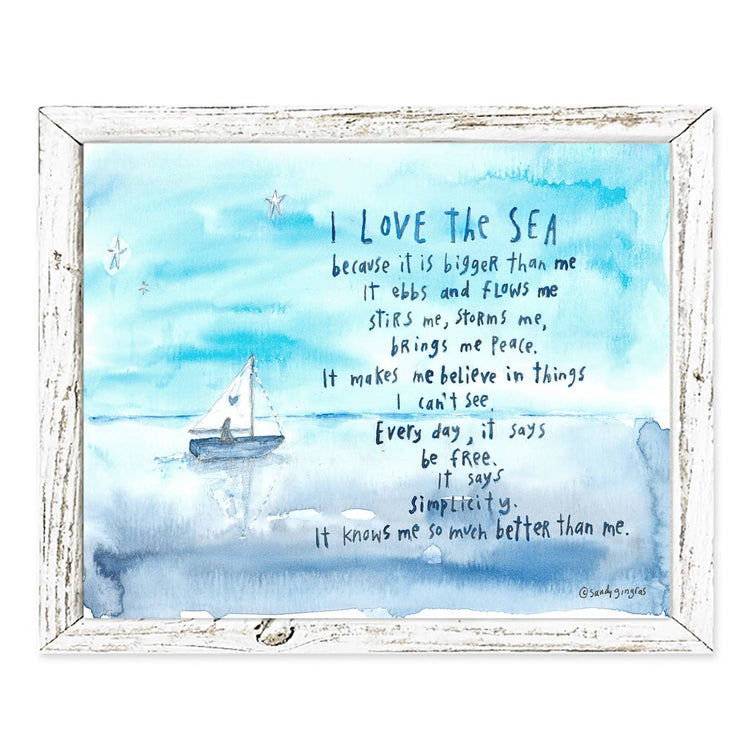 I LOVE the SEA
because it is bigger than me
It ebbs and flows me
stirs me, storms me,
brings me peace.
It makes me believe in things
I can't see.
Every day, it says
be free.
It says
simplicity.
It knows me so much better than me.
©sandy gingras